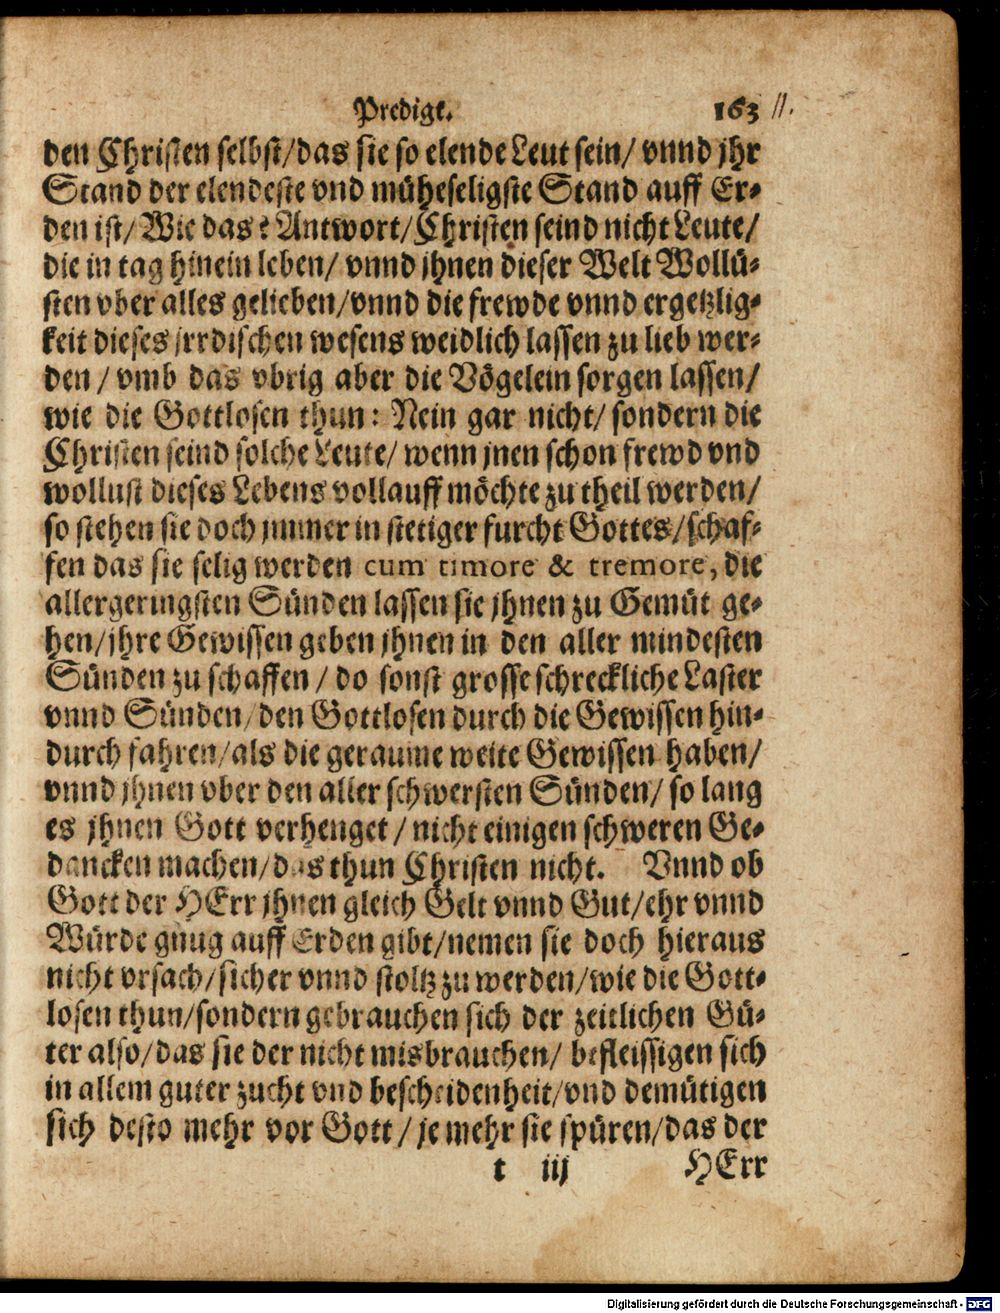 Predigt. 163 11.
den Christen selbst/das sie so elende Leut sein/ vnnd jhr
Stand der elendeste vnd müheseligste Stand auff Er-
den ist/ Wie das? Antwort/Christen seind nicht Leute/
die in tag hinein leben/ vnnd jhnen dieser Welt Wollü-
sten vber alles gelieben/vnnd die frewde vnnd ergetzlig-
keit dieses jrrdischen wesens weidlich lassen zu lieb wer-
den / vmb das vbrig aber die Vögelein sorgen lassen/
wie die Gottlosen thun: Nein gar nicht/ sondern die
Christen seind solche Leute/ wenn jnen schon frewd vnd
wollust dieses Lebens vollauff möchte zu theil werden/
so stehen sie doch jmmer in stetiger furcht Gottes/schaf-
fen das sie selig werden cum timore & tremore, die
allergeringsten Sünden lassen sie jhnen zu Gemüt ge-
hen/jhre Gewissen geben jhnen in den aller mindesten
Sünden zu schaffen / do sonst grosse schreckliche Laster
vnnd Sünden/den Gottlosen durch die Gewissen hin-
durch fahren/als die geraume weite Gewissen haben/
vnnd jhnen vber den aller schwersten Sünden/ so lang
es jhnen Gott verhenget / nicht einigen schweren Ge-
dancken machen/das thun Christen nicht. Vnnd ob
Gott der HErr jhnen gleich Gelt vnnd Gut/ehr vnnd
Würde gnug auff Erden gibt/nemen sie doch hieraus
nicht vrsach/sicher vnnd stoltz zu werden/wie die Gott-
losen thun/sondern gebrauchen sich der zeitlichen Gü-
ter also/das sie der nicht misbrauchen/ befleissigen sich
in allem guter zucht vnd bescheidenheit/vnd demütigen
sich desto mehr vor Gott / je mehr sie spüren/das der
t iij HErr
Digitalisierung gefördert durch die Deutsche Forschungsgemeinschaft - DFG